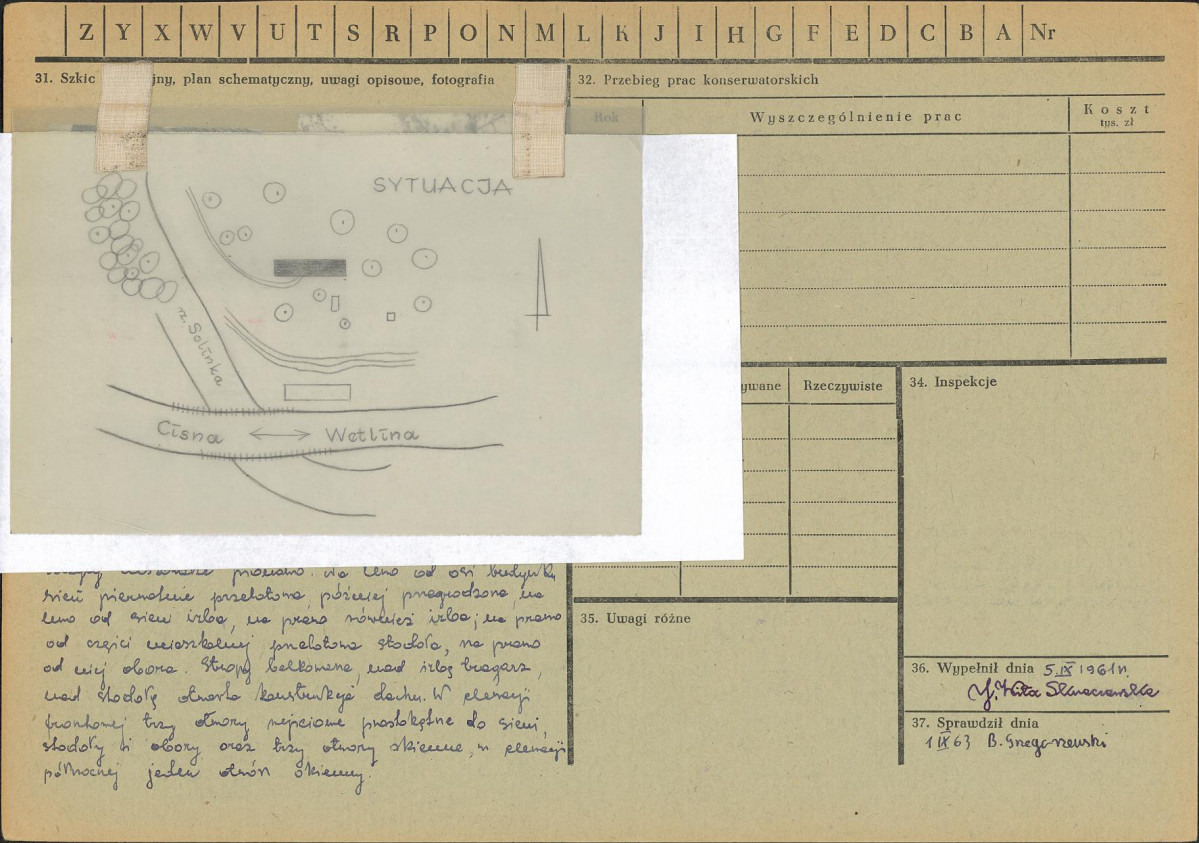 Z Y X W V U T S R P O N M L K J I H G F E D C B A Nr
31. Szkic jny, plan schematyczny, uwagi opisowe, fotografia
32. Przebieg prac konserwatorskich
Rok
Wyszczególnienie prac
Koszt
tys. zł
SYTUACJA
rz. Solinka
Cisna ⟷ Wetlina
ywane
Rzeczywiste
34. Inspekcje
na lewo od osi budynku
sień pierwotnie przelotowa, później przegrodzona, na
lewo od sieni izba, na prawo również izba; na prawo
od części mieszkalnej przelotowa stodoła, na prawo
od niej obora. Stropy belkowane, nad izbą tragarz,
nad stodołą otwarta konstrukcja dachu. W elewacji
frontowej trzy otwory wejściowe prostokątne do sieni,
stodoły i obory oraz trzy otwory okienne, w elewacji
północnej jeden otwór okienny.
35. Uwagi różne
36. Wypełnił dnia 5.IX 1961 r.
37. Sprawdził dnia
1 IX 63 B.